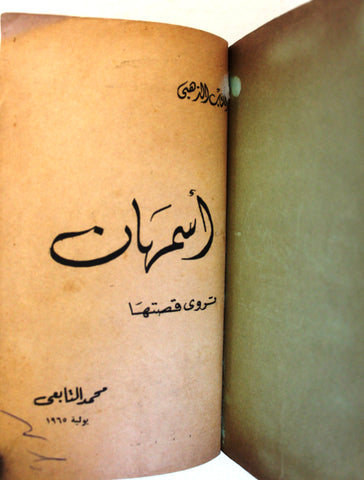 الكتاب الذهبى
أسمهان
تروى قصتها
محمد التابعى
يولية ١٩٦٥